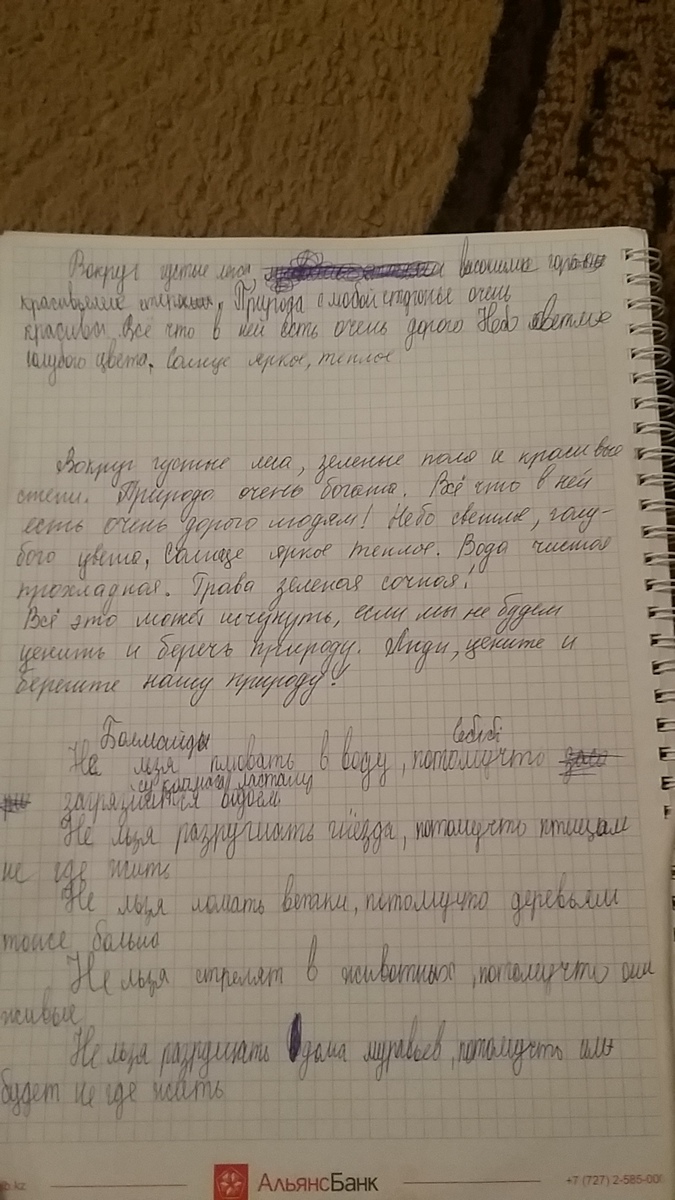 Вокруг густые леса высокими горами
красивыми степями. Природа с мобой стороны очень
красивы. Всё что в ней есть очень дорого Небо светлое
голубого цвета. Солнце яркое, теплое
Вокруг густые леса, зеленые поля и красивые
степи. Природа очень богата. Всё что в ней
есть очень дорого людям! Небо светлое, голу-
бого цвета, Солнце яркое теплое. Вода чистая
прохладная. Трава зеленая сочная!
Всё это может исчезнуть, если мы не будем
ценить и беречь природу. Люди, цените и
берегите нашу природу!
Болмайды себебі
Не льзя плювать в воду, потомучто
су
загрязнится водоём
Не льзя разрушать гнёзда, потомучто птицам
не где жить
Не льзя ломать ветки, потомучто деревьям
тоже больно
Не льзя стрелят в животных, потомучто они
живые
Не льзя разрушать дома муравьев, потомучто им
будет не где жить
b.kz АльянсБанк +7 (727) 2-585-00